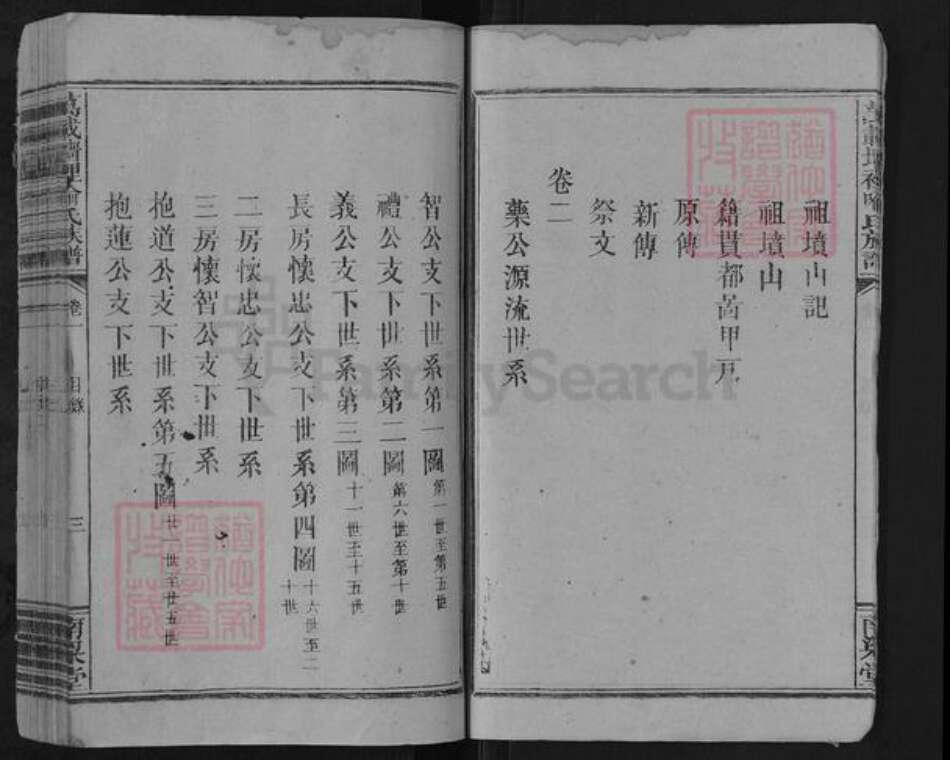 祖墳山記
祖墳山
籍貫都啚甲戶
原傳
新傳
祭文
卷二
藥公源流世系
智公支下世系第一圖 第一世至第五世
禮公支下世系第二圖 第六世至第十世
義公支下世系第三圖 十一世至十五世
長房懷忠公支下世系第四圖 十六世至二十世
二房懷忠公支下世系
三房懷智公支下世系
抱道公支下世系第五圖 廿一世至廿五世
抱蓮公支下世系
卷一
目錄
三
FamilySearch